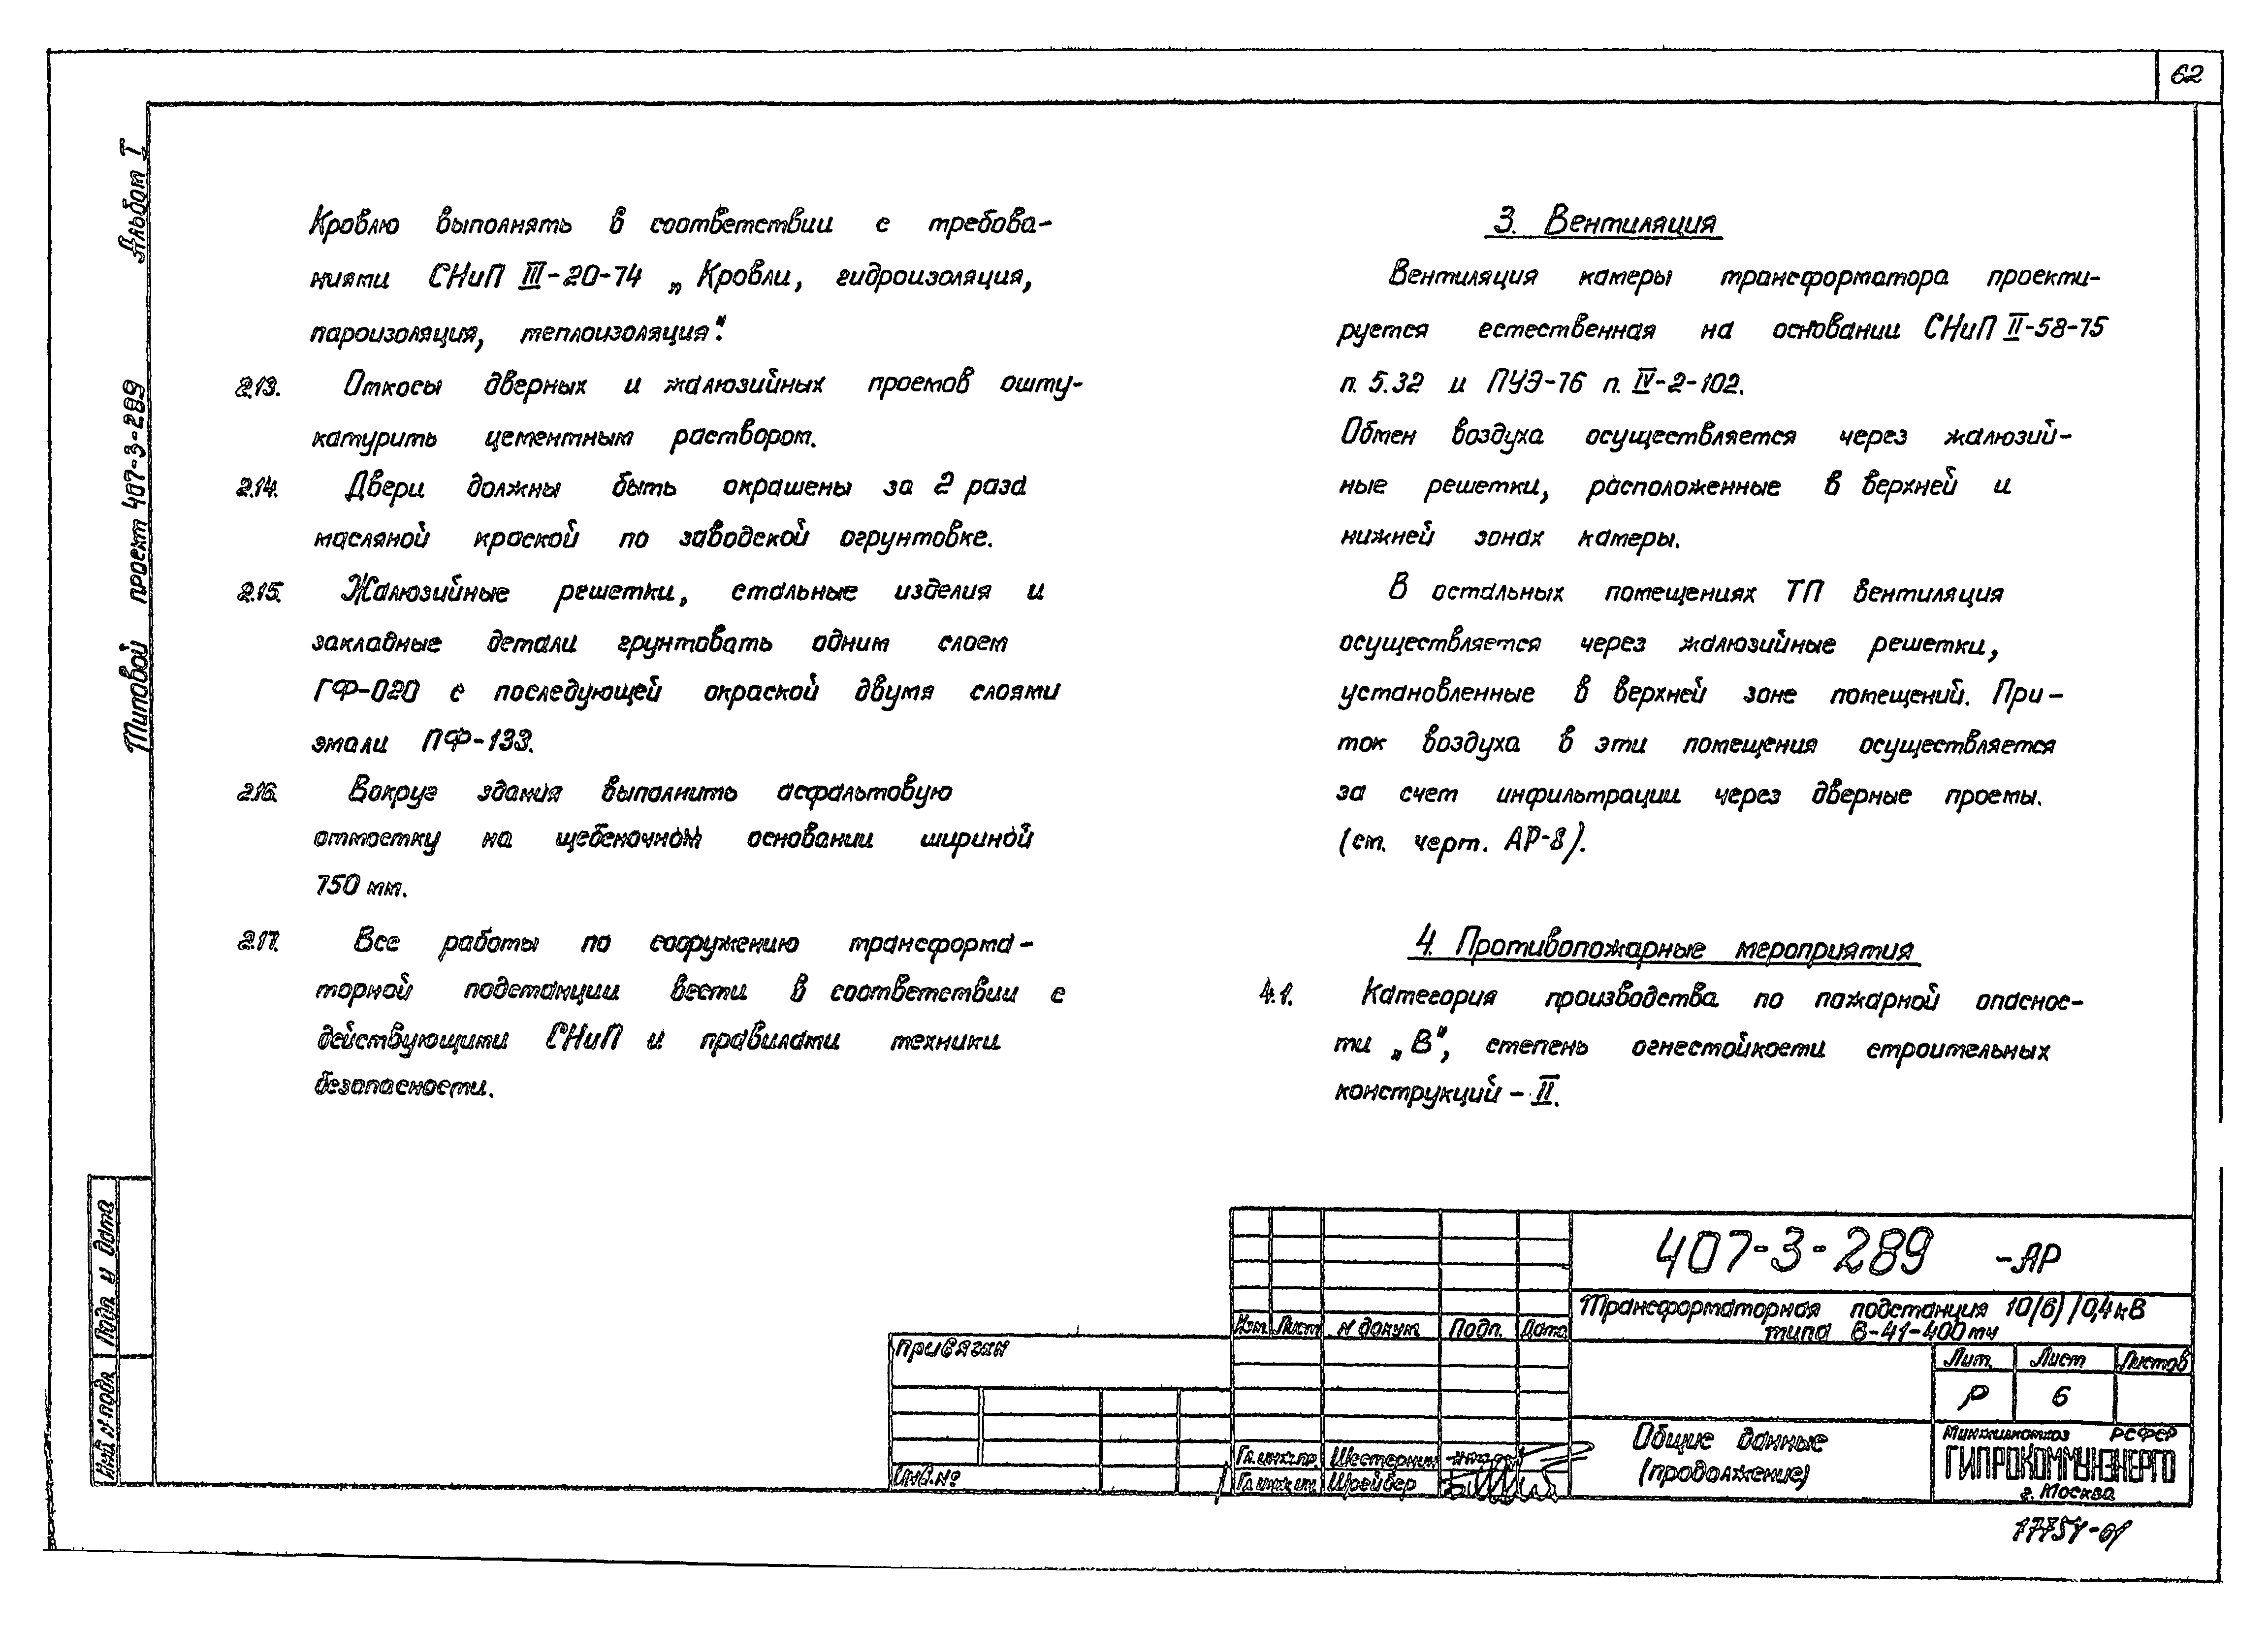 62
Альбом I
Типовой проект 407-3-289
Кровлю выполнять в соответствии с требова-
ниями СНиП III-20-74 „Кровли, гидроизоляция,
пароизоляция, теплоизоляция".
2.13. Откосы дверных и жалюзийных проемов ошту-
катурить цементным раствором.
2.14. Двери должны быть окрашены за 2 раза
масляной краской по заводской огрунтовке.
2.15. Жалюзийные решетки, стальные изделия и
закладные детали грунтовать одним слоем
ГФ-020 с последующей окраской двумя слоями
эмали ПФ-133.
2.16. Вокруг здания выполнить асфальтовую
отмостку на щебеночном основании шириной
750 мм.
2.17. Все работы по сооружению трансформа-
торной подстанции вести в соответствии с
действующими СНиП и правилами техники
безопасности.
3. Вентиляция
Вентиляция камеры трансформатора проекти-
руется естественная на основании СНиП II-58-75
п. 5.32 и ПУЭ-76 п. IV-2-102.
Обмен воздуха осуществляется через жалюзий-
ные решетки, расположенные в верхней и
нижней зонах камеры.
В остальных помещениях ТП вентиляция
осуществляется через жалюзийные решетки,
установленные в верхней зоне помещений. При-
ток воздуха в эти помещения осуществляется
за счет инфильтрации через дверные проемы.
(см. черт. АР-8).
4. Противопожарные мероприятия
4.1. Категория производства по пожарной опаснос-
ти „В", степень огнестойкости строительных
конструкций - II.
Инв. № подл. Подп. и дата
Привязан
Инв. №
Изм. Лист № докум. Подп. Дата
Гл. инж. пр. Шестернин
Гл. инж. ин. Шрейбер
407-3-289 -АР
Трансформаторная подстанция 10(6)/0,4 кВ
типа В-41-400 м4
Лит. Лист Листов
Р 6
Общие данные
(продолжение)
Минжилкомхоз РСФСР
ГИПРОКОММУНЭНЕРГО
г. Москва
17754-01